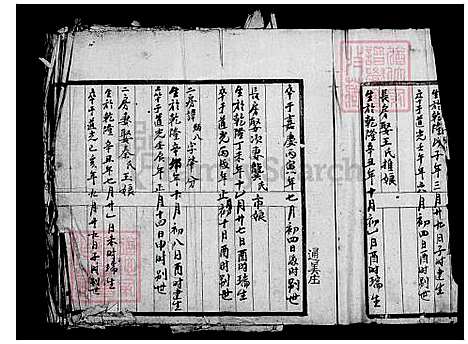 生於乾隆戊子年三月廿九日子時建生
卒于道光壬午年六月初四日酉時別世
長房娶王氏植娘
生於乾隆辛丑年十月初一日酉時瑞生
通美庄
卒于嘉慶丙寅年七月初四日夜時別世
長房娶次妻龔氏市娘
生於乾隆丁未年十一月廿七日酉時瑞生
卒于道光丙戌年正月初十日酉時別世
二房諱 八字 分
生於乾隆辛卯年十月初八日酉時建生
卒于道光壬辰年正月十四日申時別世
二房妻娶秦氏玉娘
生於乾隆辛丑年七月廿一日未時瑞生
卒于道光己亥年九月廿七日子時別世